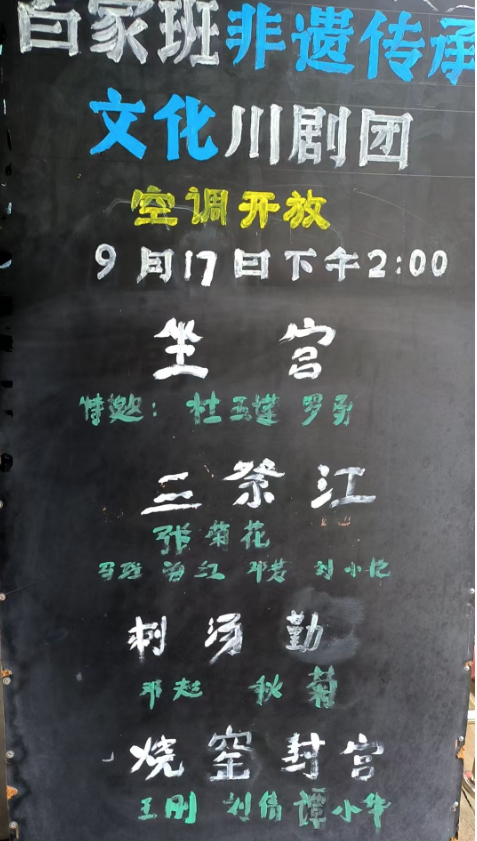 百家班非遗传承
文化川剧团
空调开放
9月17日下午2:00
坐宫
特邀：杜玉 罗勇
三祭江
张菊花
海江 邓芳 刘小忆
刺汤勤
邓超 秋菊
烧窑封宫
王刚 刘倩 谭小华